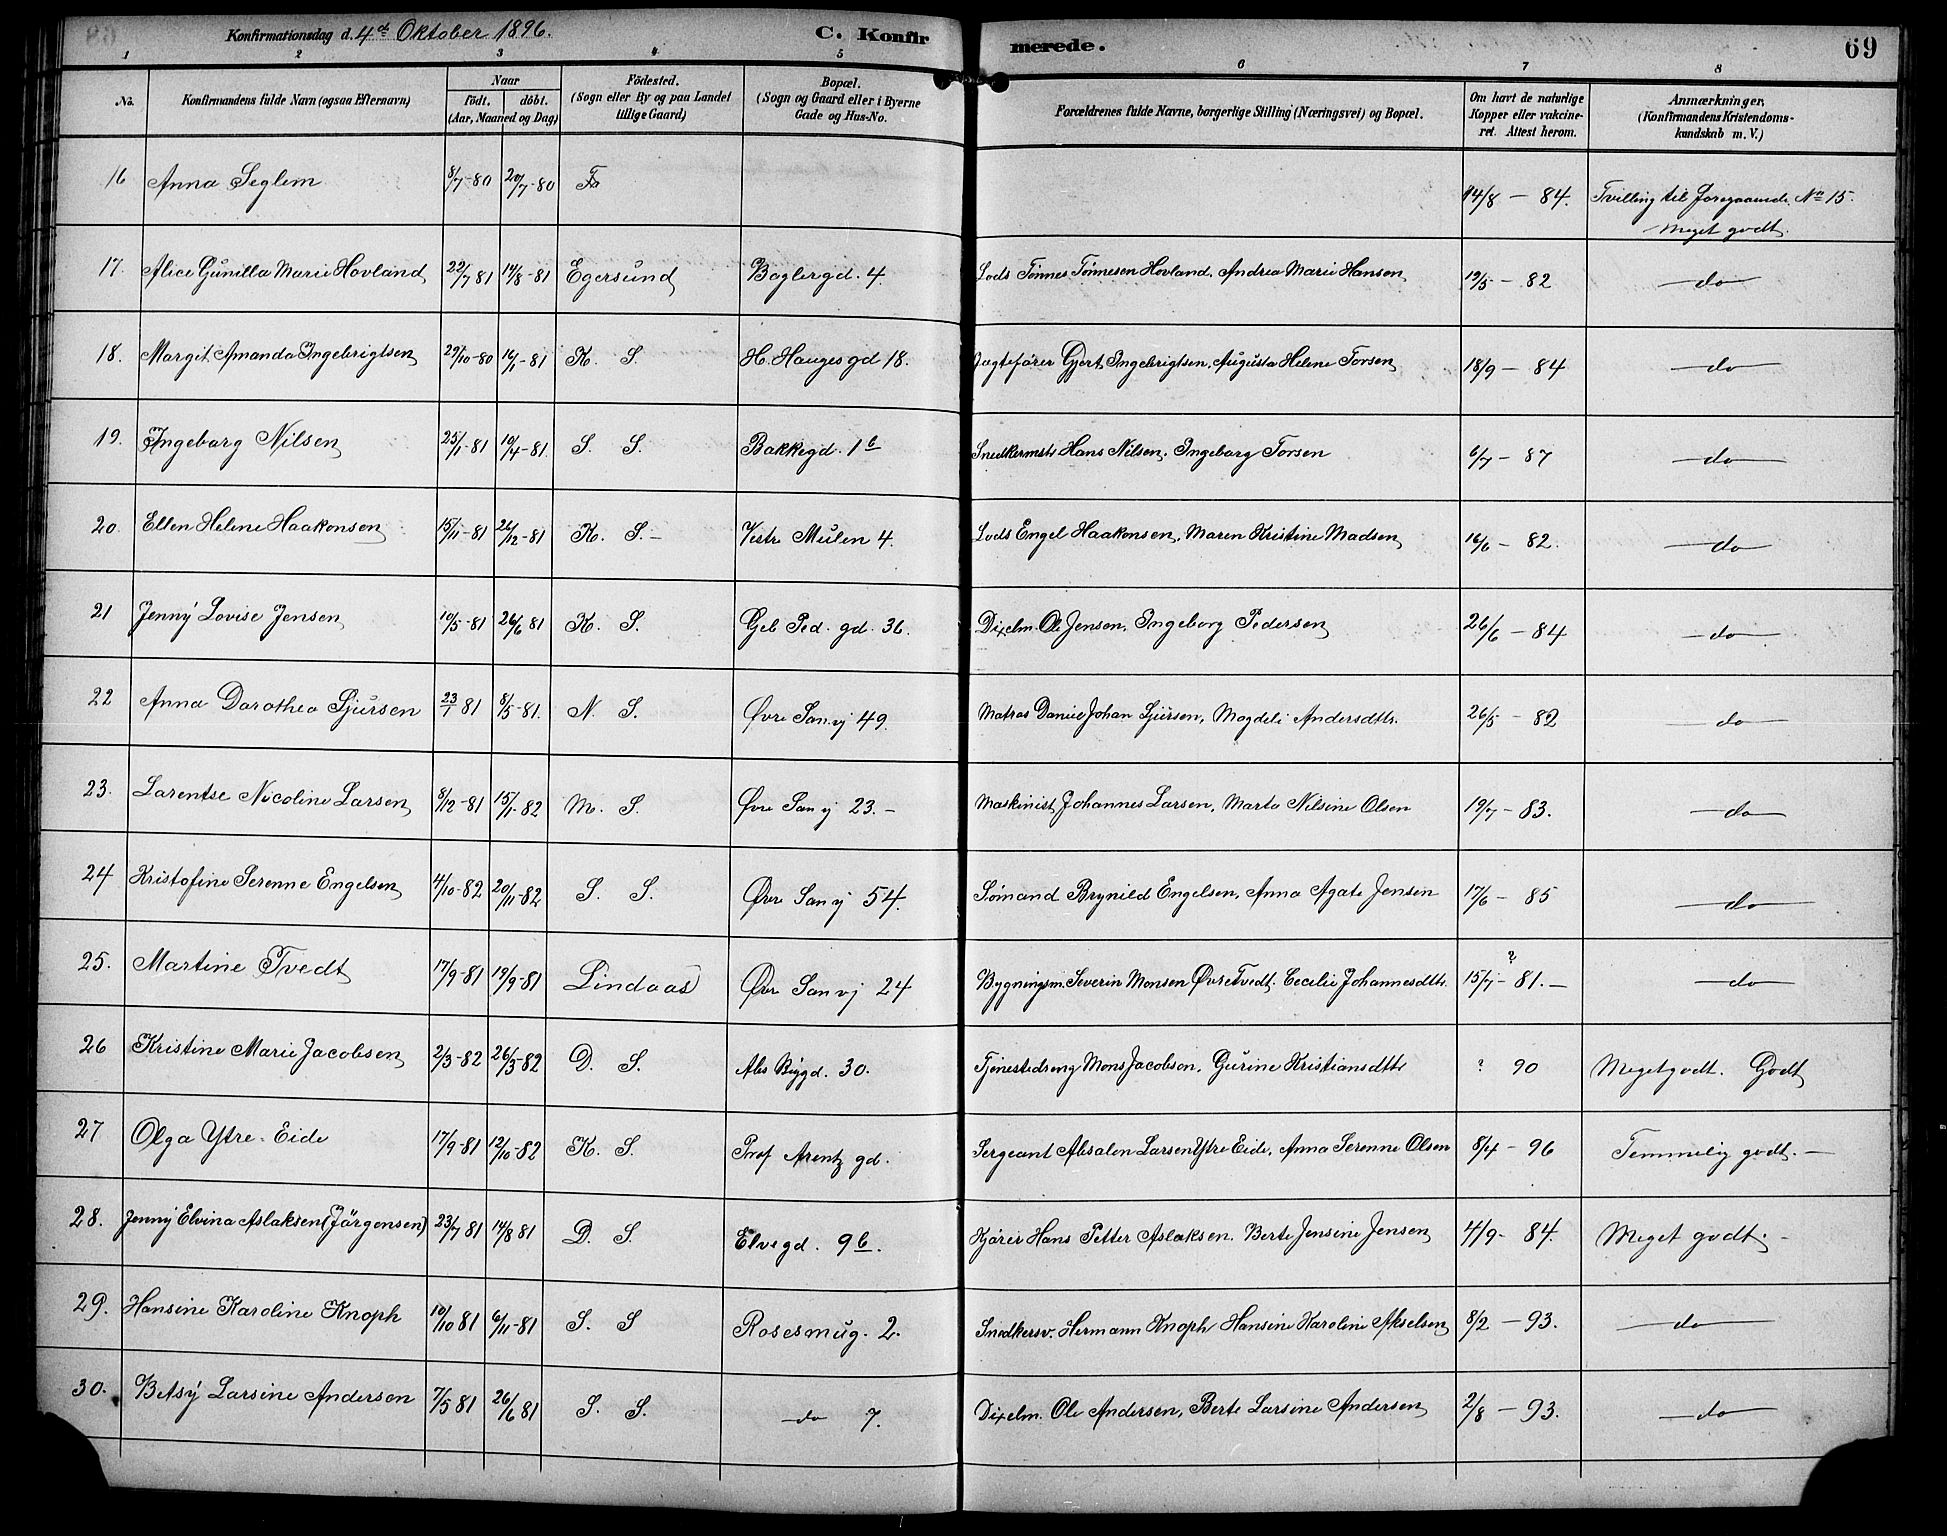 Konfirmationsdag d. 4de Oktober 1896. C. Konfirmerede. 69
1 2 3 4 5 6 7 8
No. Konfirmandens fulde Navn (ogsaa Efternavn) Naar født. døbt. (Aar, Maaned og Dag) Fødested. (Sogn eller By og paa Landet tillige Gaard) Bopæl. (Sogn og Gaard eller i Byerne Gade og Hus-No. Forældrenes fulde Navne, borgerlige Stilling (Næringsvei) og Bopæl. Om havt de naturlige Kopper eller vakcineret. Attest herom. Anmærkninger. (Konfirmandens Kristendomskundskab m. V.)
16 Anna Seglem 8/7-80 20/7-80 14/8 - 84. Tvilling til Foregaaende No 15. Meget godt.
17. Alice Gunilla Marie Hovland 22/7 81 14/8-81 Egersund Baglergd. 4. Lods Tønnes Tønnesen Hovland, Andrea Marie Hansen 19/5 - 82 do
18. Margit Amanda Ingebrigtsen 29/10-80 16/1-81 K. S. H. Hauges gd 18. Jagtefører Gjert Ingebrigtsen, Augusta Helene Torsen 18/9 - 84 do
19. Ingeborg Nilsen 25/1-81 10/4-81. S. S. Bakkegd. 1b Snedkermstr Hans Nilsen, Ingeborg Torsen 6/7 - 87 do
20. Ellen Helene Haakonsen 15/11-81 26/12-81 K. S. - Vestr Mulen 4. Lods Engel Haakonsen, Maren Kristine Madsen 16/6 - 82. do
21 Jenny Lovise Jensen 10/5-81 26/6 81 K. S. Geb Ped. gd. 36. Dixelm. Ole Jensen, Ingeborg Pedersen 26/6 - 84 do
22 Anna Dorothea Sjursen 23/1 81 8/5-81. N. S. Øvre Sanvj 49. Matros Daniel Johan Sjursen, Magdeli Andersdtr. 26/5 - 82 do
23. Larentse Nicoline Larsen 8/12-81 15/1-82 M. S. Øvre Sanvj 23. - Maskinist Johannes Larsen, Marta Nilsine Olsen 19/7 - 83. do
24 Kristofine Serenne Engelsen 4/10-82 20/11-82 S. S. Øvr Sanvj 54. Sømand Brynild Engelsen, Anna Agate Jensen 17/6 - 85 do
25. Martine Tvedt 17/9-81 19/9-81 Lindaas Øvr Sanvj 24 Bygningsm. Severin Monsen Øvre Tvedt. Cecilie Johannesdtr. 15/7 - 81. ? - do
26 Kristine Marie Jacobsen 2/3-82 26/3-82 D. S. 30. Tjenestedreng Mons Jacobsen, Gurine Kristiansdtr ? 90 Megetgodt. Godt
27 Olga Ytre-Eide 17/9-81 12/10-82 K. S. Prof Arentz gd. Sergeant Absalon Larsen Ytre Eide, Anna Serenne Olsen 8/4 - 96 Temmelig godt. -
28. Jenny Elvina Aslaksen (Jørgensen) 23/7 81 14/8 81 D. S. Elvegd. 9b. Kjører Hans Petter Aslaksen. Berte Jensine Jensen 4/9 - 84. Meget godt. -
29. Hansine Karoline Knoph 10/10 81 6/11-81 S. S Rosesmug. 2. Snedkersv. Hermann Knoph Hansine Karoline Akselsen 8/2 - 93. do
30. Betsy Larsine Andersen 7/5 81 26/6 81 S. S. do 7. Dixelm. Ole Andersen, Berte Larsine Andersen 2/8 - 93. do